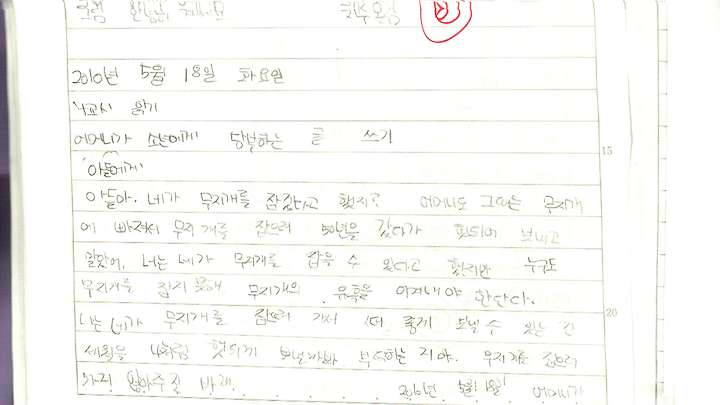 2010년 5월 18일 화요일
4교시 읽기
어머니가 소년에게 당부하는 글 쓰기
'아들에게'
아들아. 네가 무지개를 잡겠다고 했지? 어머니도 그때는 무지개
에 빠져서 무지개를 잡으러 50년을 갔다가 헛되이 보내고
말았어. 너는 네가 무지개를 잡을 수 있다고 했지만 누구도
무지개를 잡지 못해 무지개의 유혹을 이겨내야 한단다.
나는 네가 무지개를 잡으러 가서 더 좋게 보낼 수 있는 긴
세월을 나처럼 헛되게 보낼까봐 부탁하는 거야. 무지개를 잡으러
가지 말아주길 바래. 2010년 5월 18일 어머니가
15
20